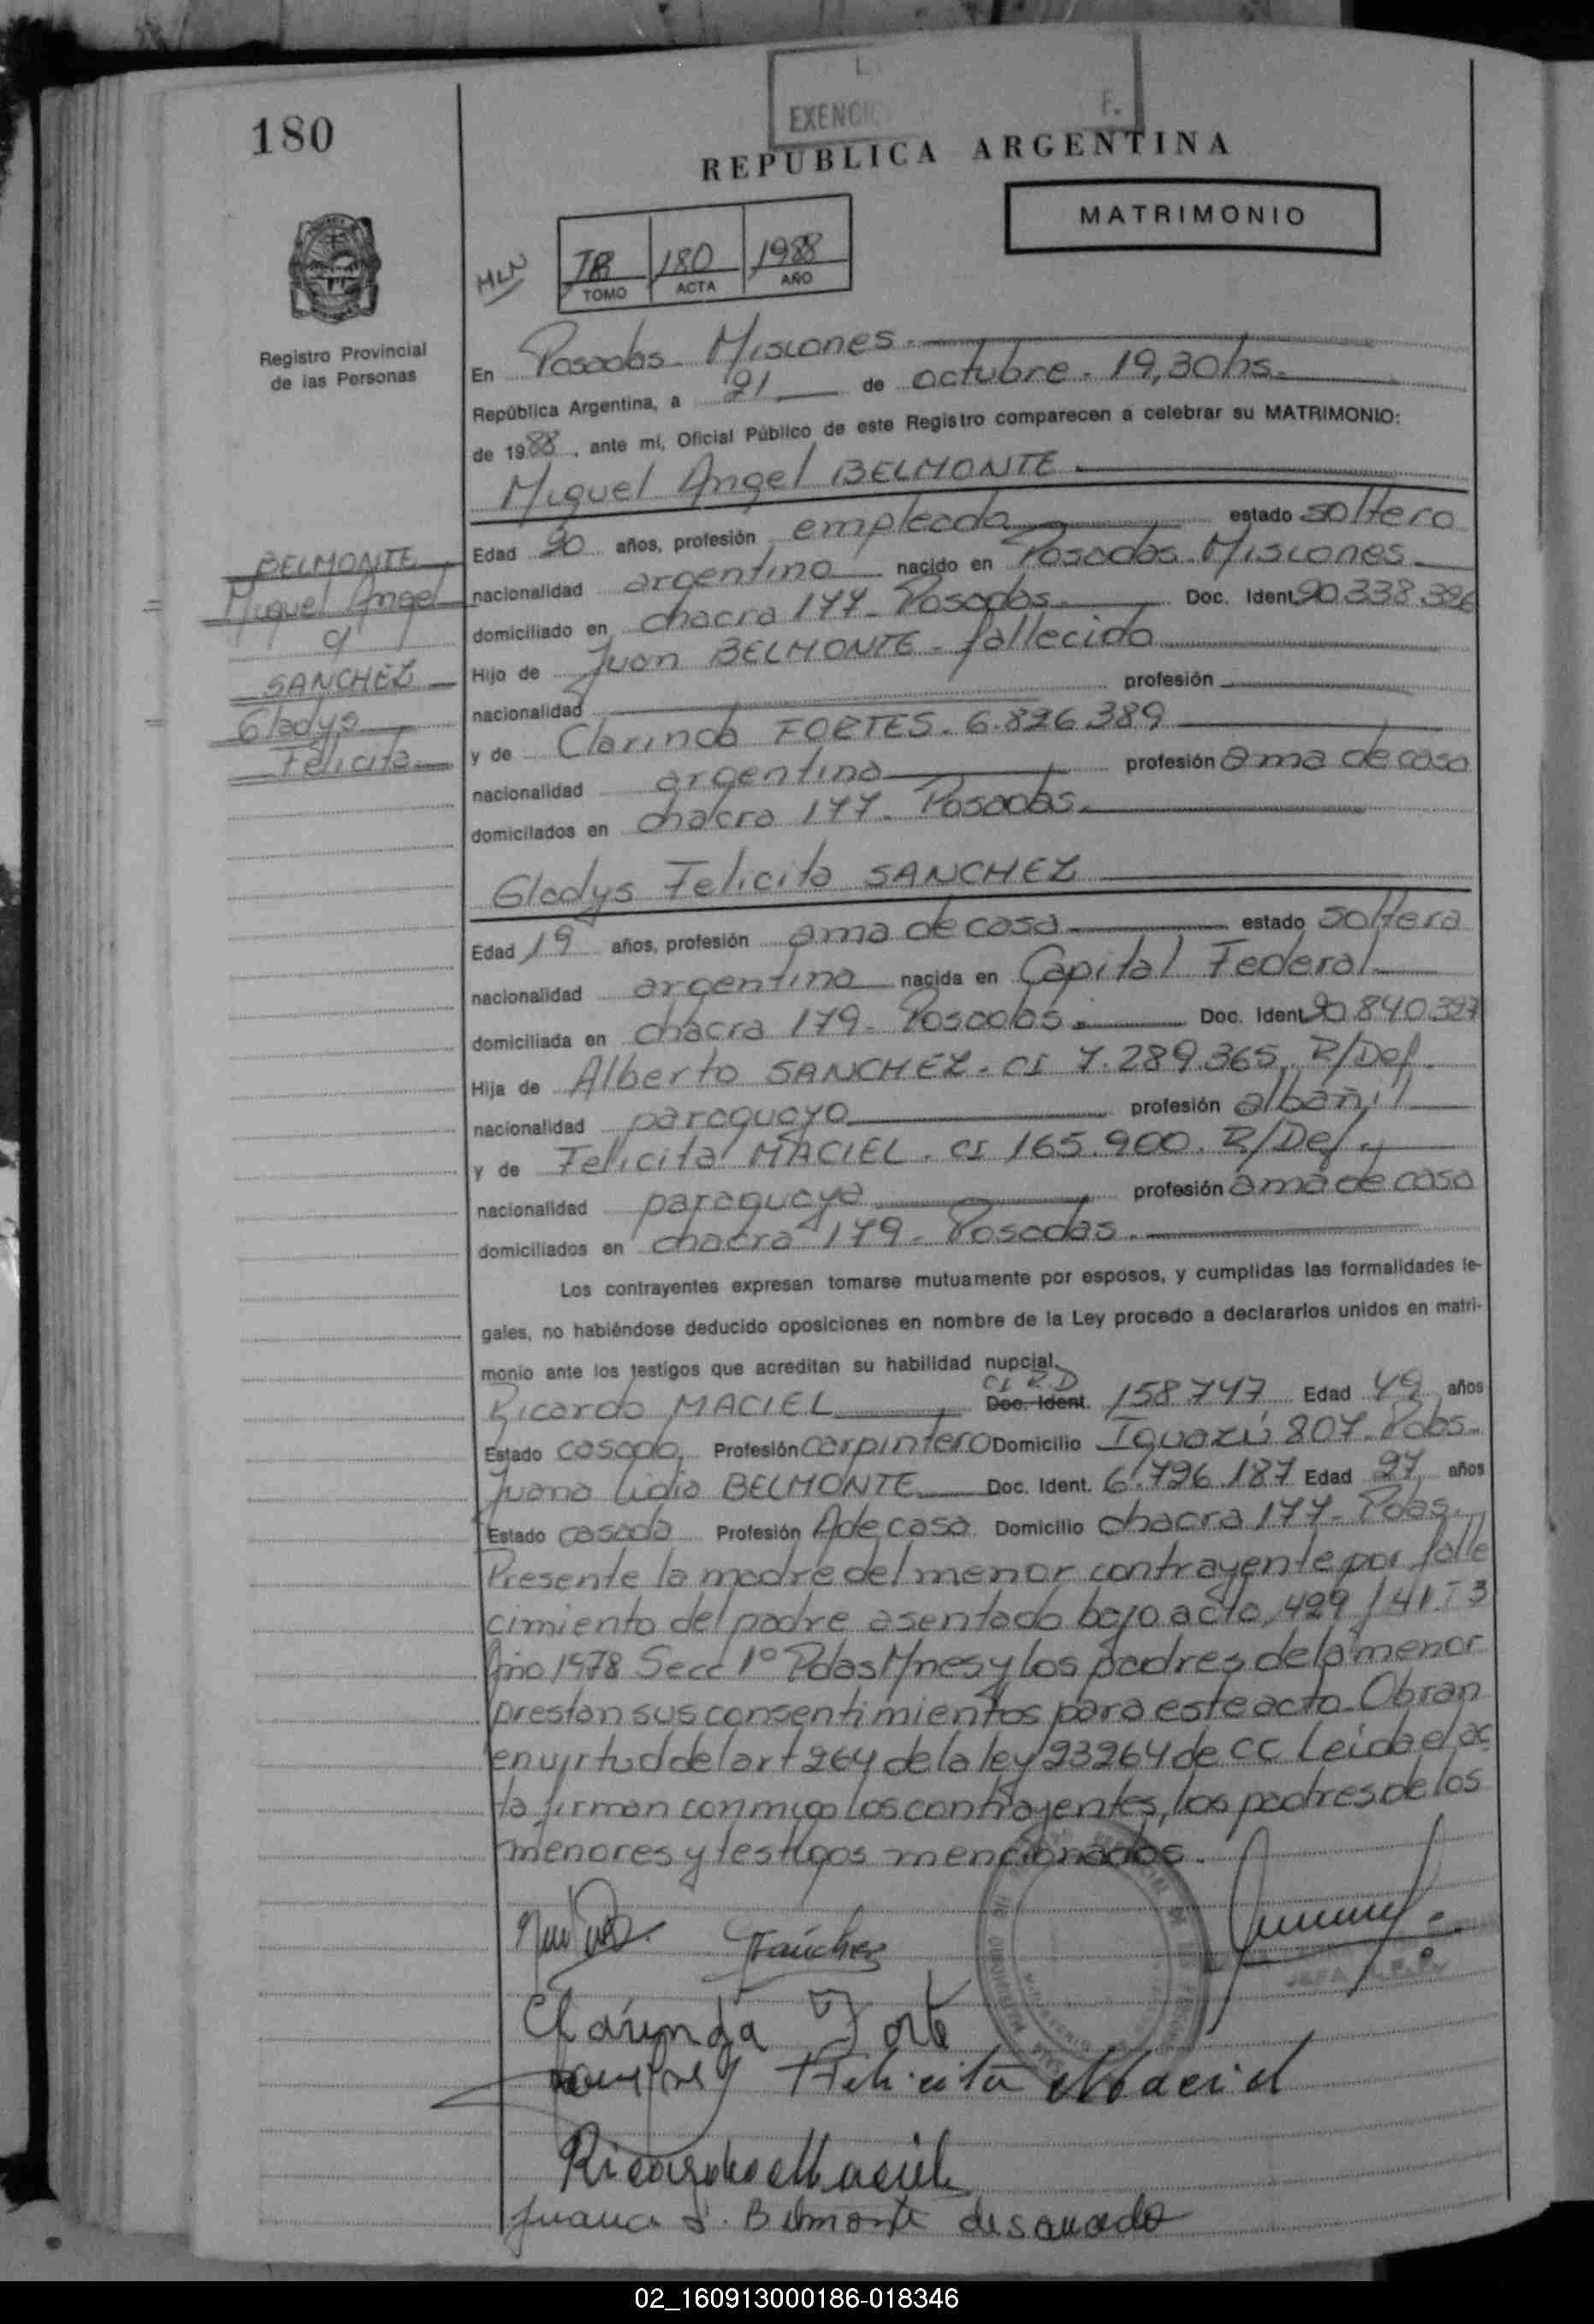 180
EXENCI
F.
REPUBLICA ARGENTINA
MATRIMONIO
MLN
1988
180
TOMO
ACTA
AÑO
Registro Provincial
de las Personas
En Posadas - Misiones.
República Argentina, a 21 de octubre. 19,30 hs.
de 1988, ante mi, Oficial Público de este Registro comparecen a celebrar su MATRIMONIO:
Miguel Angel BELMONTE
Edad 20 años, profesión empleado estado soltero
nacionalidad argentino nacido en Posadas. Misiones
domiciliado en chacra 177. Posadas. Doc. Ident. 20.338.396
Hijo de Juan BELMONTE - fallecido
nacionalidad profesión
y de Clarinda FORTES. 6.826.389
nacionalidad argentina profesión ama de casa
domicilados en chacra 177. Posadas.
BELMONTE
Miguel Angel
c/
SANCHEZ
Gladys
Felicita
Gladys Felicita SANCHEZ
Edad 19 años, profesión ama de casa estado soltera
nacionalidad argentina nacida en Capital Federal
domiciliada en chacra 179. Posadas. Doc. Ident. 20.840.397
Hija de Alberto SANCHEZ. CI 7.289.365. R/Def.
nacionalidad paraguayo profesión albañil
y de Felicita MACIEL. CI 165.900. R/Def.
nacionalidad paraguaya profesión ama de casa
domiciliados en chacra 179. Posadas.
Los contrayentes expresan tomarse mutuamente por esposos, y cumplidas las formalidades le-
gales, no habiéndose deducido oposiciones en nombre de la Ley procedo a declararlos unidos en matri-
monio ante los testigos que acreditan su habilidad nupcial.
CI R.D
Ricardo MACIEL Doc. Ident. 158.747 Edad 49 años
Estado casado Profesión carpintero Domicilio Iguazú 807. Pdas.
Juana Lidia BELMONTE Doc. Ident. 6.796.187 Edad 27 años
Estado casada Profesión A de casa Domicilio chacra 177. Pdas.
Presente la madre del menor contrayente por falle
cimiento del padre asentado bajo acta 429 / 41. T 3
Año 1978 Secc 1° Pdas Mnes y los padres de la menor
prestan sus consentimientos para este acto. Obran
en virtud del art 264 de la ley 23264 de CC Leida el ac
ta firman conmigo los contrayentes, los padres de los
menores y testigos mencionados.
Sanchez
Clarinda Forte
Felicita Maciel
Ricardo Maciel
Juana L. Belmonte de
02_160913000186-018346